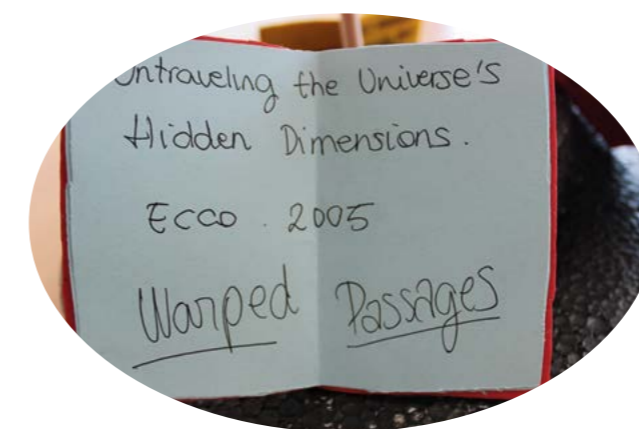 Untraveling the Universe's
Hidden Dimensions.
Ecco. 2005
Warped Passages